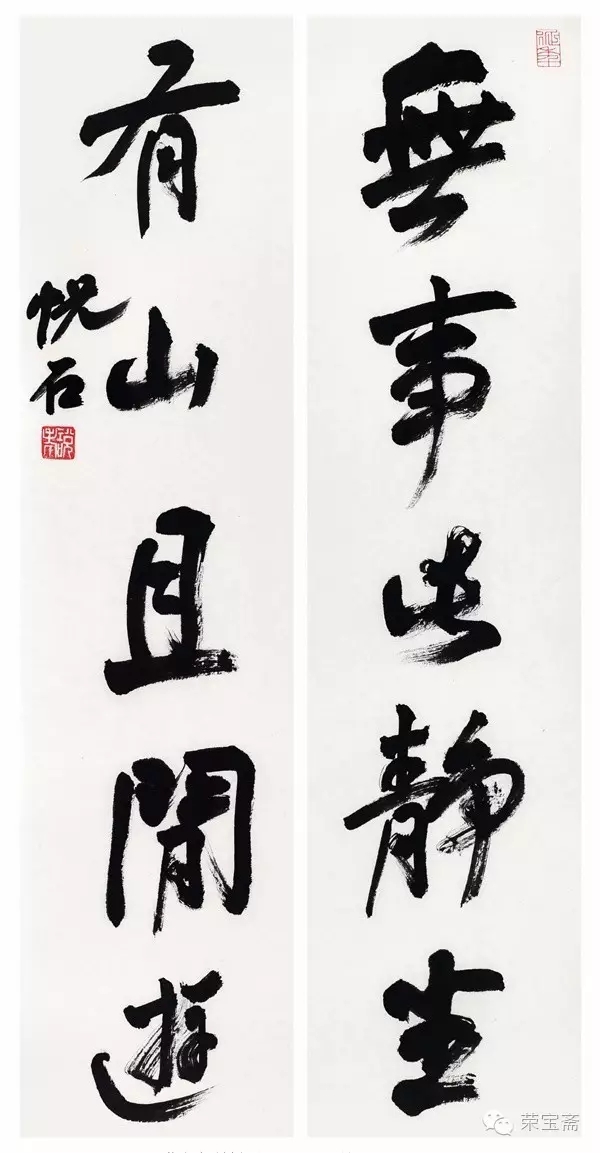 無事此靜坐
有山且閒遊
悦石
荣宝斋